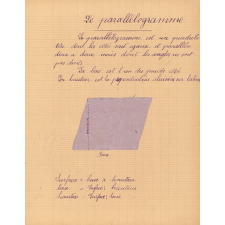 Le parallélogramme
Le parallélogramme est un quadrila-
tère dont les côtés sont égaux et parallèles
deux à deux, mais dont les angles ne sont
pas droits.
La base est l'un des grands côtés
La hauteur est la perpendiculaire abaissée sur la base
Base
Surface = base x hauteur
base = surface : hauteur
hauteur = surface : base